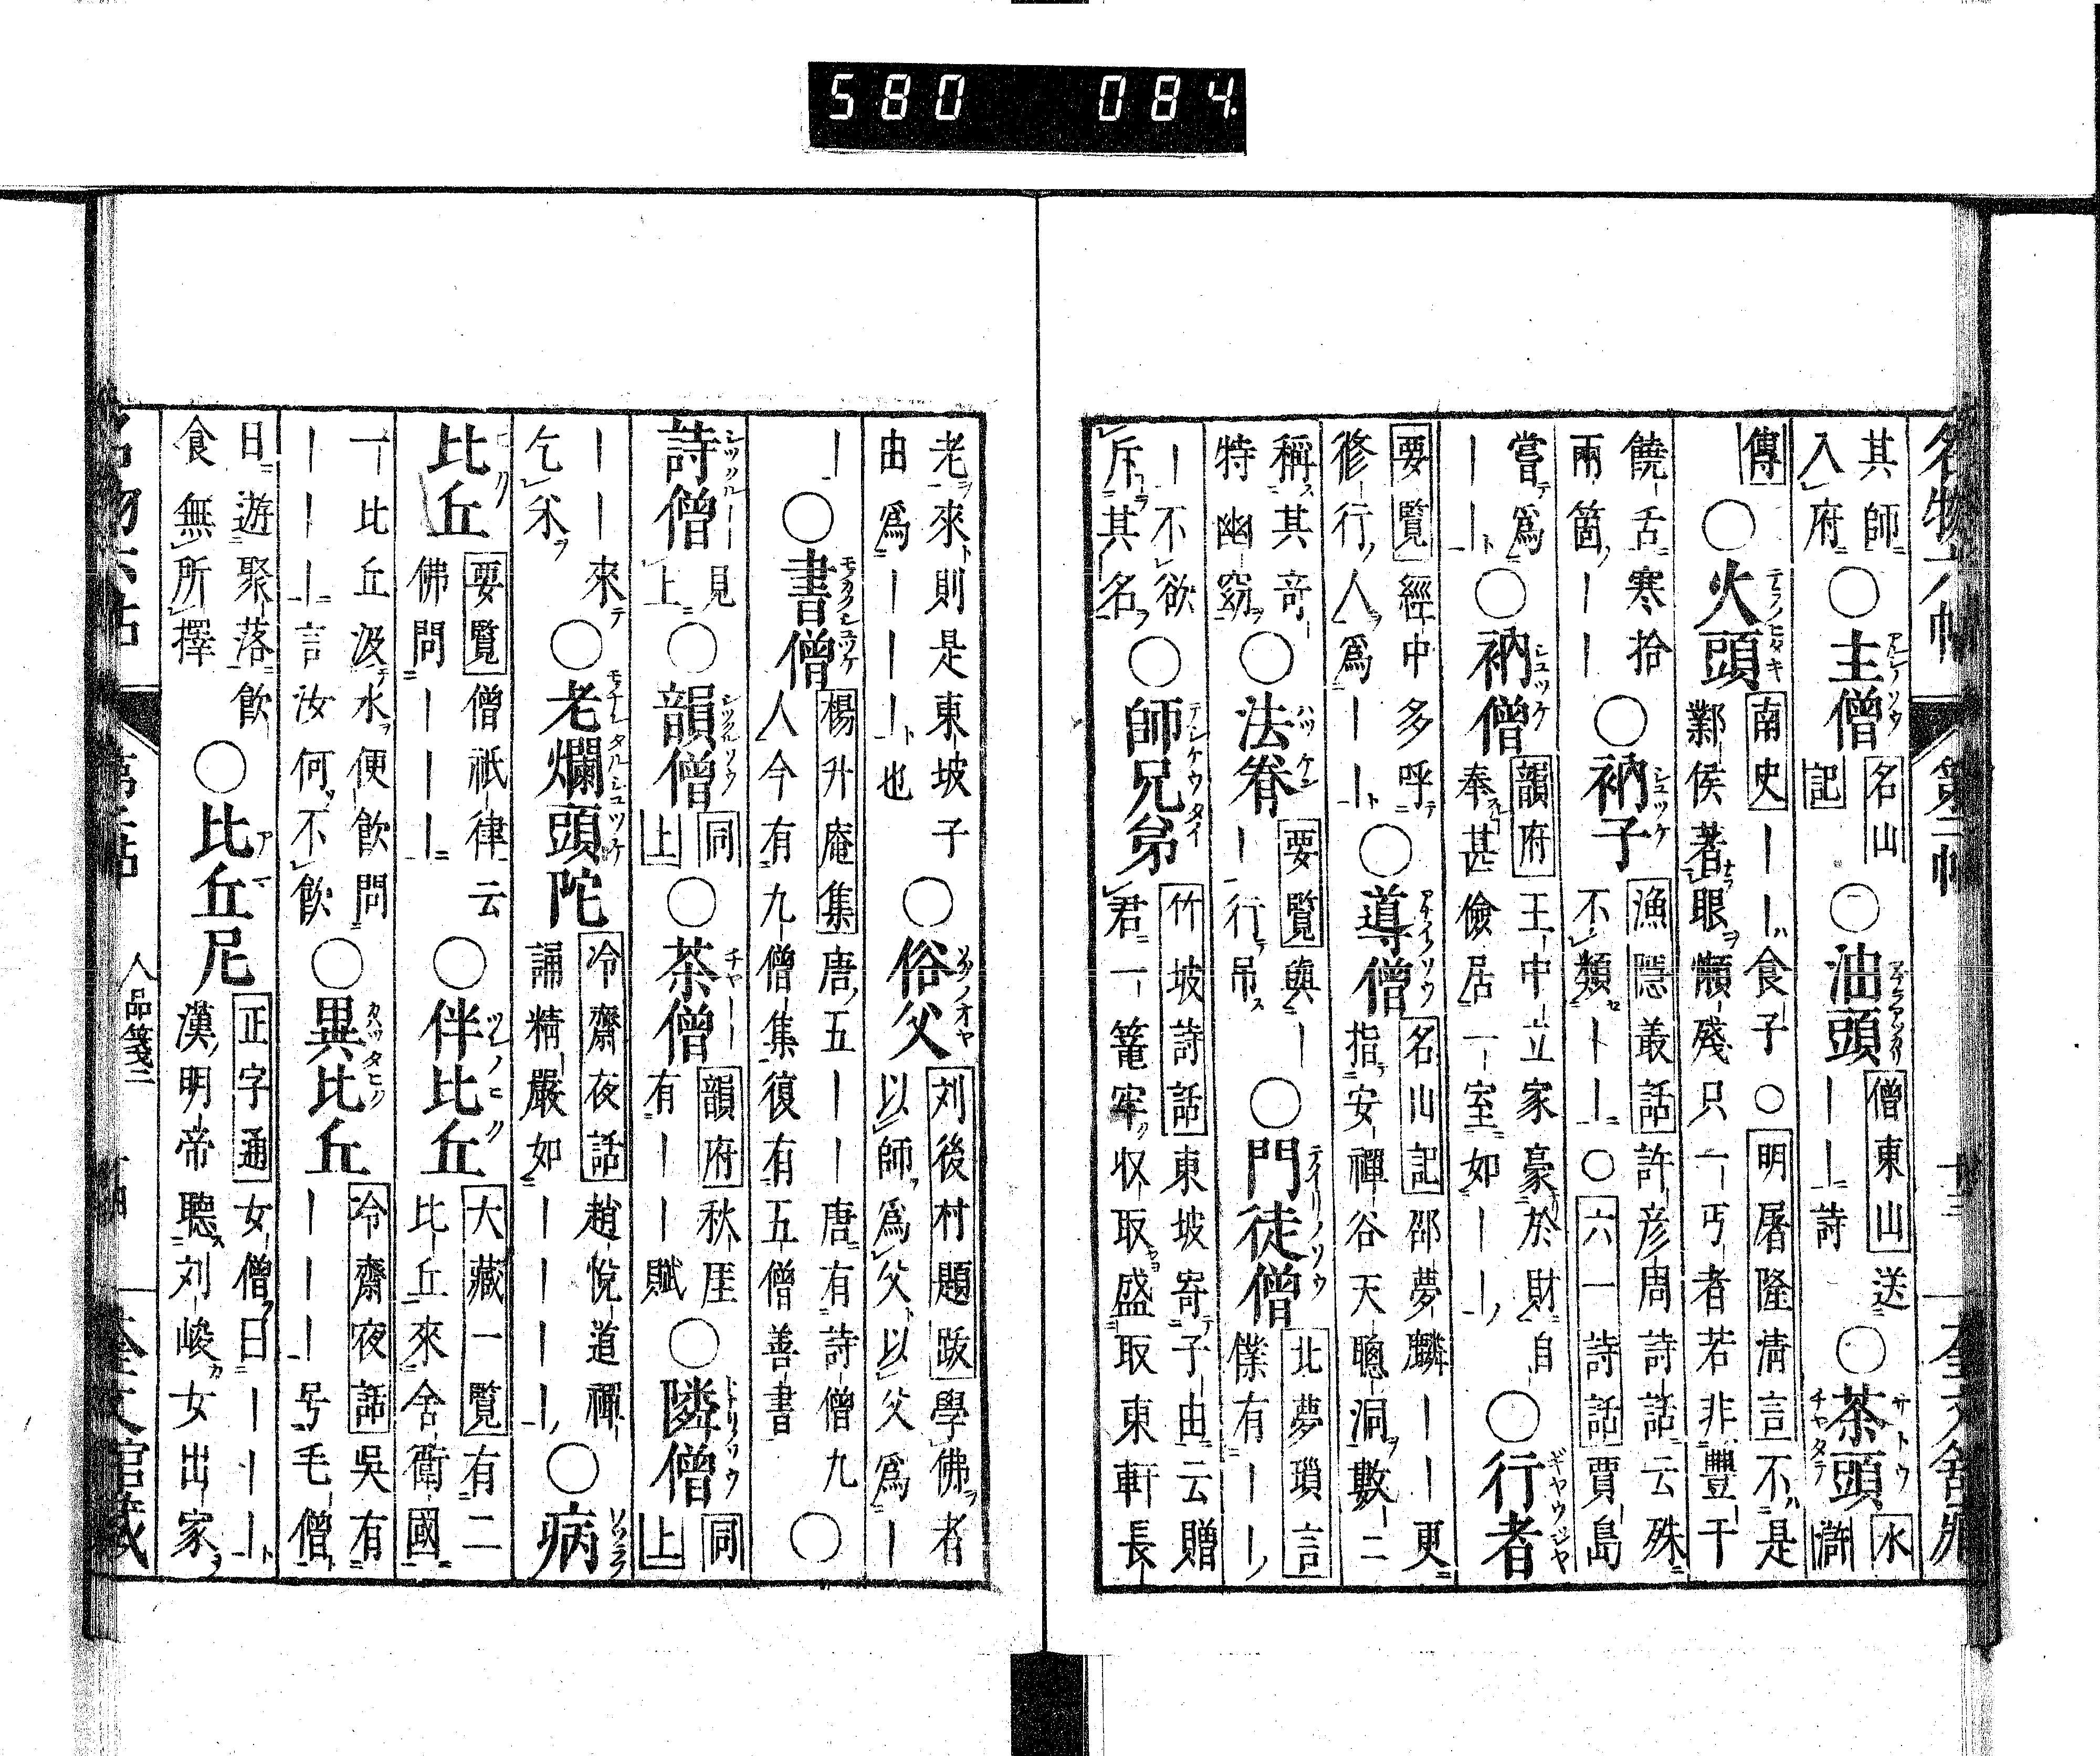 名物六帖 第二帖 十三 奎文舘藏
其師入府○主僧 名山記○油頭 僧東山送｜｜詩○茶頭 水滸
傳○火頭 南史｜｜食子○明屠隆淸言不是鄴侯著眼懶殘只一丐者若非豐干
饒舌寒拾兩箇｜｜○衲子 漁隱叢話許彦周詩話云殊不類｜｜○六一詩話賈島
嘗爲｜｜○衲僧 韻府王中立家豪於財自奉甚儉居一室如｜｜○行者
要覽經中多呼修行人爲｜｜○導僧 名山記邵夢麟｜｜更指安禪谷天聰洞數二
稱其奇特幽窈○法眷 要覽與｜｜行吊○門徒僧 北夢瑣言僕有｜｜
｜不欲斥其名○師兄弟 竹坡詩話東坡寄子由云贈君一篭牢収取盛取東軒長
老來則是東坡子由爲｜｜｜也○俗父 刘後村題跋學佛者以師爲父以父爲｜
｜○書僧 楊升庵集唐五｜｜唐有詩僧九人今有九僧集復有五僧善書○
詩僧 見上○韻僧 同上○茶僧 韻府秋厓有｜｜賦○隣僧 同上
｜｜來乞米○老爛頭陀 冷齋夜話趙悅道禪誦精嚴如｜｜｜｜○病
比丘 要覽僧祇律云佛問｜｜｜○伴比丘 大藏一覽有二比丘來舍衛國
一比丘汲水便飲問｜｜｜言汝何不飲○異比丘 冷齋夜話吳有｜｜｜号毛僧
日遊聚落飲食無所擇○比丘尼 正字通女僧曰｜｜｜漢明帝聽刘峻女出家
名物六帖 第二帖 人品箋二 奎文館藏
580 084